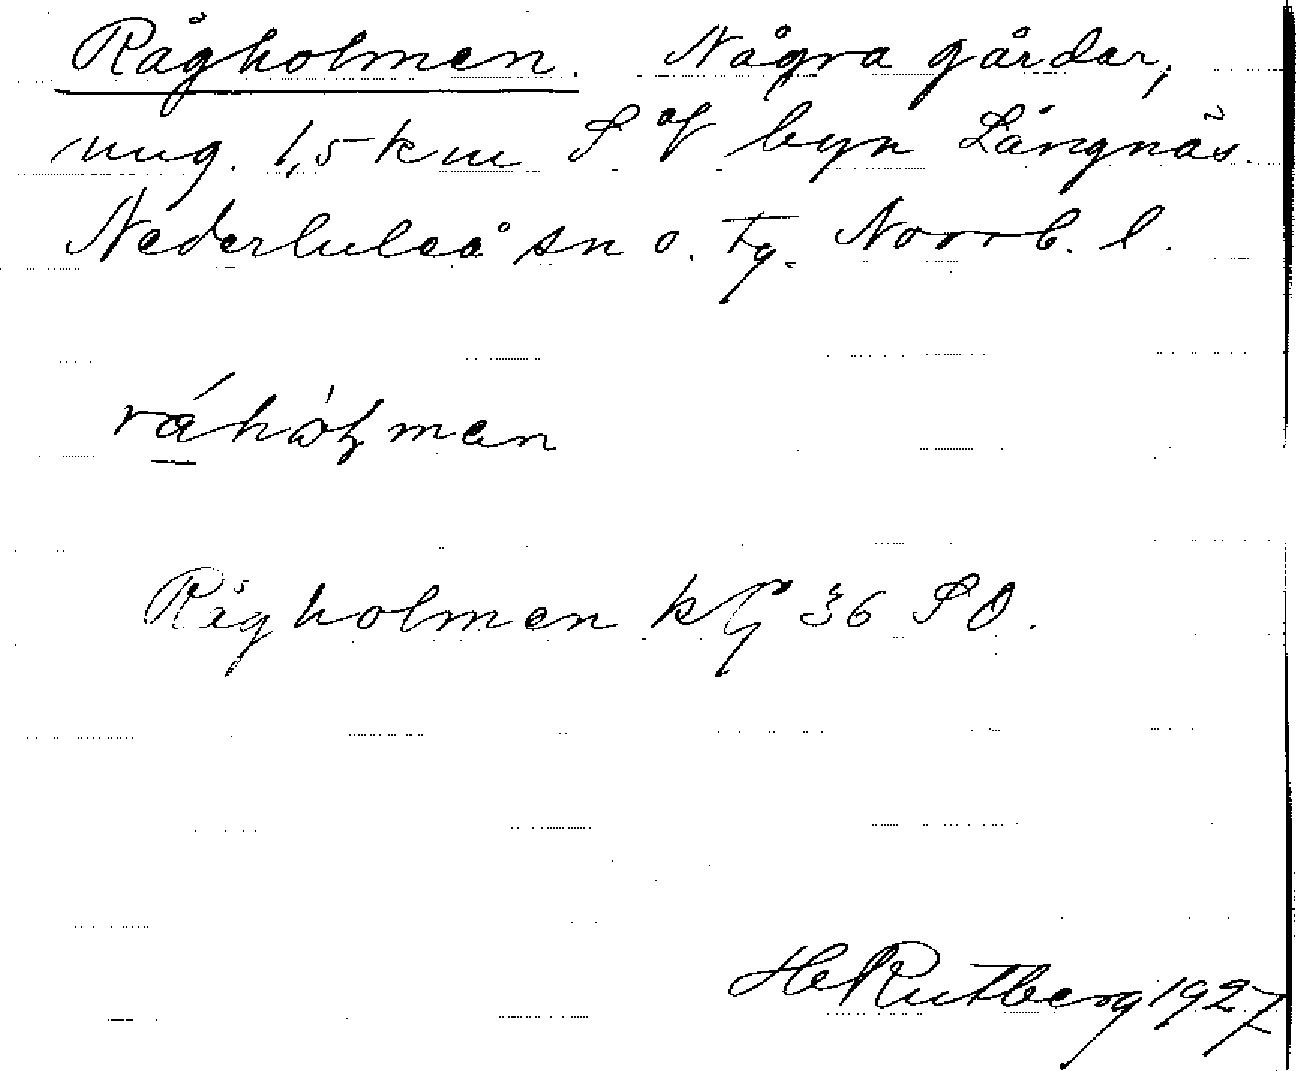 Rågholmen. Några gårder,
ung. 1,5 km S of byn Långnäs.
Nederluleå sn o. tg. Norrb. l.
ráhólman
Rågholmen kG 36 SO.
HeRutberg 1927